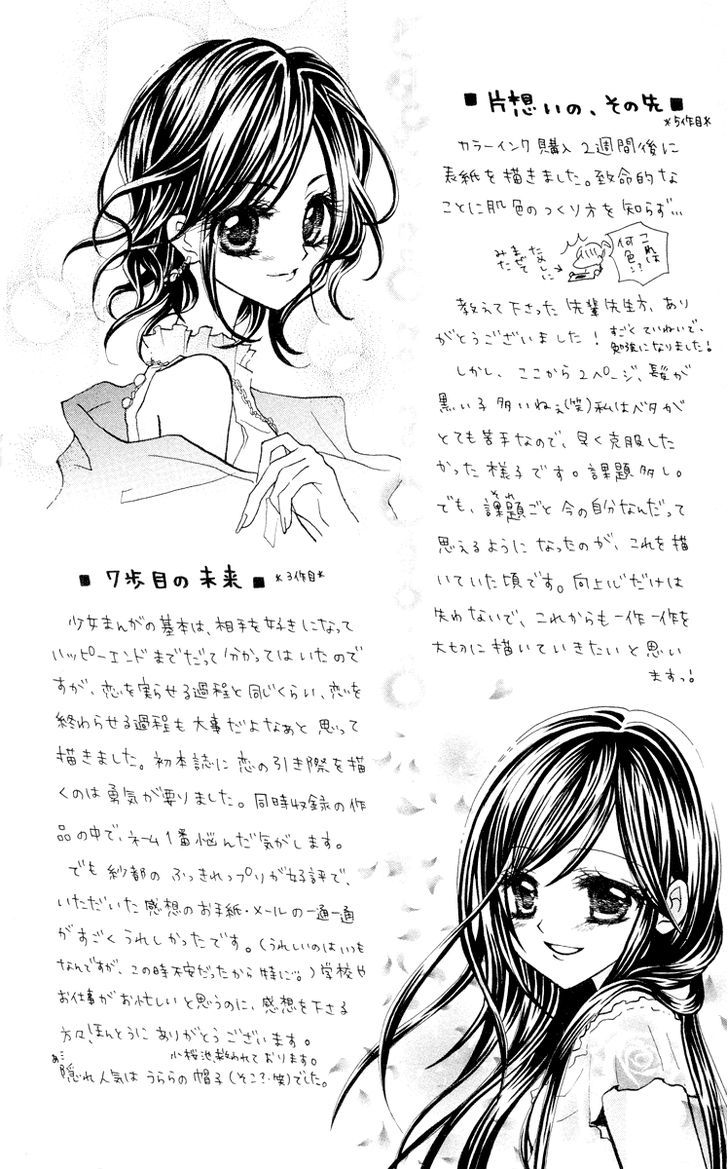 ■片想いの、その先■
*5作目*
カラーインク購入2週間後に
表紙を描きました。致命的な
ことに肌色のつくり方を知らず…
みたまま
なしに
これは
何色!?
教えて下さった先輩先生方、あり
がとうございました!
すごくていねいで、
勉強になりました!
しかし、ここから2ページ、髪が
黒い子多いねぇ(笑)私はベタが
とても苦手なので、早く克服した
かった様子です。課題多し。
でも、課題ごと今の自分なんだって
それ
思えるようになったのが、これを描
いていた頃です。向上心だけは
失わないで、これからも一作一作を
大切に描いていきたいと思い
ますっ!
■7歩目の未来■
*3作目*
少女まんがの基本は、相手を好きになって
ハッピーエンドまでだって分かってはいたので
すが、恋を実らせる過程と同じくらい、恋を
終わらせる過程も大事だよなぁと思って
描きました。初本誌に恋の引き際を描
くのは勇気が要りました。同時収録の作
品の中で、ネーム1番悩んだ気がします。
でも紗都のふっきれっプリが好評で、
いただいた感想のお手紙・メールの一通一通
がすごくうれしかったです。(うれしいのはいつも
なんですが、この時不安だったから特に…。)学校や
お仕事がお忙しいと思うのに、感想を下さる
方々、ほんとうにありがとうございます。
小桜池救われております。
あ…隠れ人気はうららの帽子(そこ?・笑)でした。